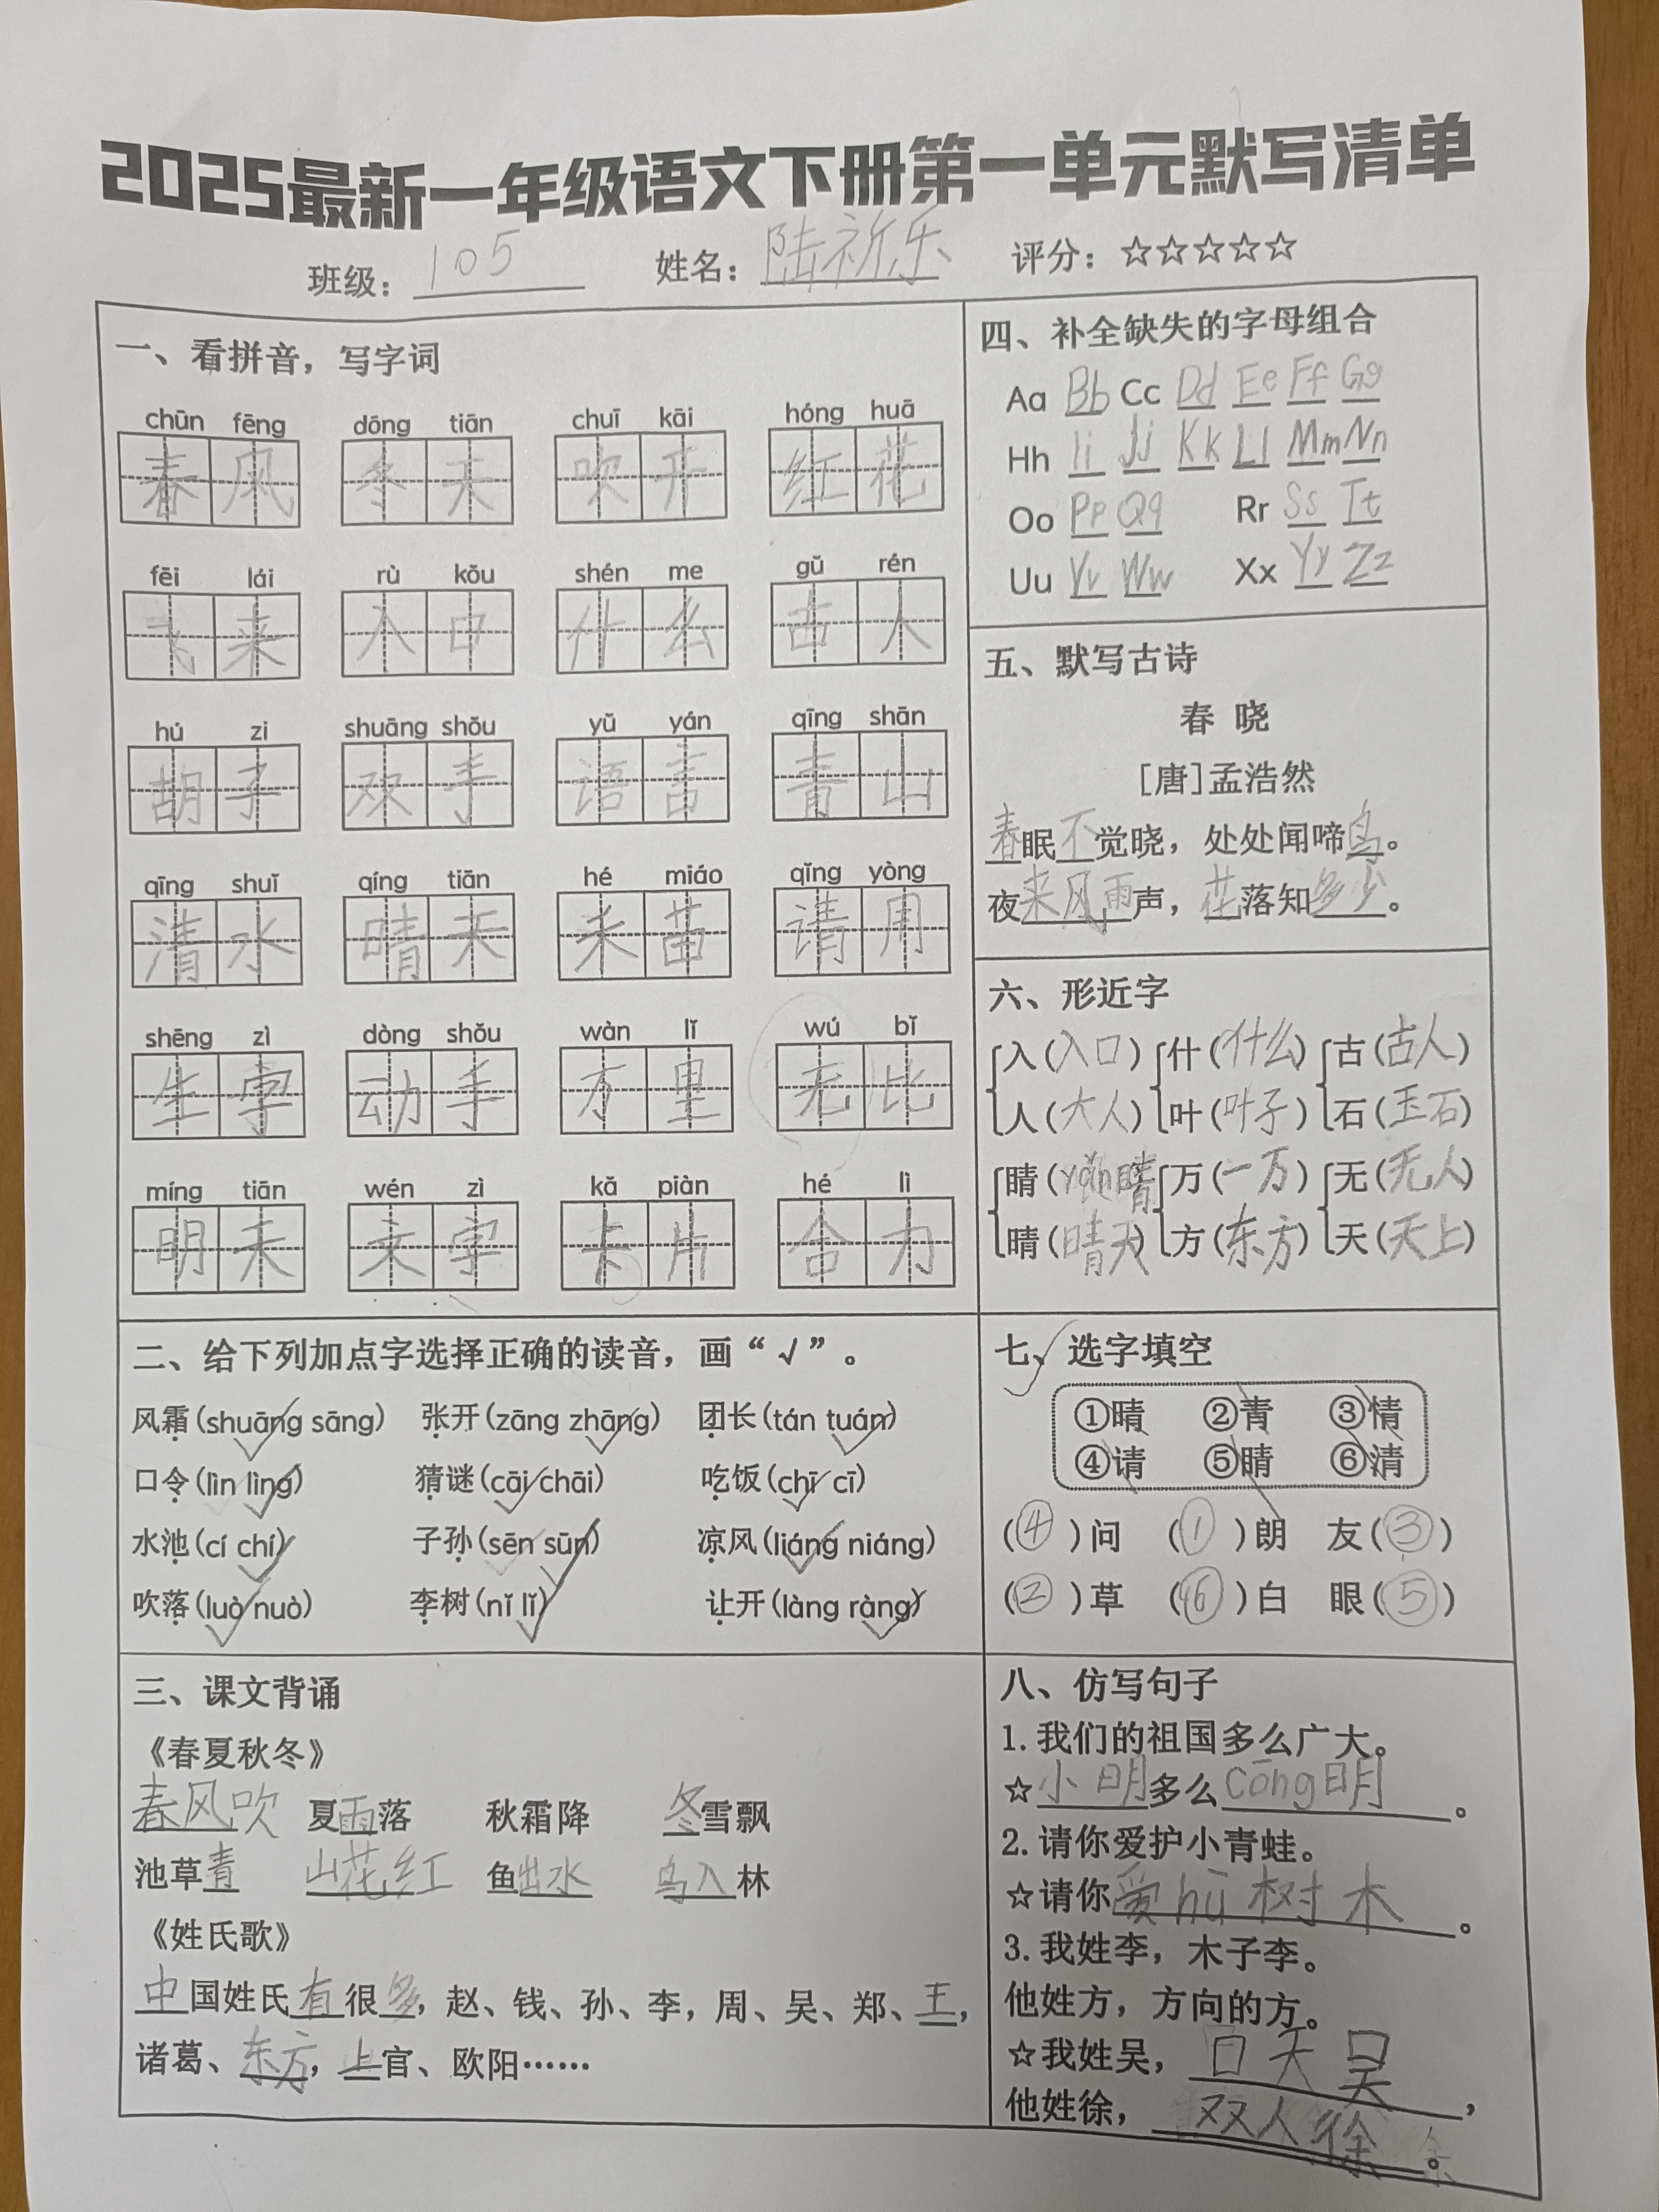 2025最新一年级语文下册第一单元默写清单
班级：105 姓名：陆祈乐 评分：☆☆☆☆☆
一、看拼音，写字词
chūn fēng dōng tiān chuī kāi hóng huā
春风 冬天 吹开 红花
fēi lái rù kǒu shén me gǔ rén
飞来 入口 什么 古人
hú zi shuāng shǒu yǔ yán qīng shān
胡子 双手 语言 青山
qīng shuǐ qíng tiān hé miáo qǐng yòng
清水 晴天 禾苗 请用
shēng zì dòng shǒu wàn lǐ wú bǐ
生字 动手 万里 无比
míng tiān wén zì kǎ piàn hé lì
明天 文字 卡片 合力
二、给下列加点字选择正确的读音，画“√”。
风霜(shuāng sāng) 张开(zāng zhāng) 团长(tán tuán)
口令(lìn lìng) 猜谜(cāi chāi) 吃饭(chī cī)
水池(cí chí) 子孙(sēn sūn) 凉风(liáng niáng)
吹落(luò nuò) 李树(nǐ lǐ) 让开(làng ràng)
三、课文背诵
《春夏秋冬》
春风吹 夏雨落 秋霜降 冬雪飘
池草青 山花红 鱼出水 鸟入林
《姓氏歌》
中国姓氏有很多，赵、钱、孙、李，周、吴、郑、王，
诸葛、东方，上官、欧阳……
四、补全缺失的字母组合
Aa Bb Cc Dd Ee Ff Gg
Hh Ii Jj Kk Ll Mm Nn
Oo Pp Qq Rr Ss Tt
Uu Vv Ww Xx Yy Zz
五、默写古诗
春 晓
[唐]孟浩然
春眠不觉晓，处处闻啼鸟。
夜来风雨声，花落知多少。
六、形近字
入(入口) 什(什么) 古(古人)
人(大人) 叶(叶子) 石(玉石)
睛(yǎn睛) 万(一万) 无(无人)
晴(晴天) 方(东方) 天(天上)
七、选字填空
①晴 ②青 ③情
④请 ⑤睛 ⑥清
(④)问 (①)朗 友(③)
(②)草 (⑥)白 眼(⑤)
八、仿写句子
1.我们的祖国多么广大。
☆小明多么cōng明。
2.请你爱护小青蛙。
☆请你爱hù树木。
3.我姓李，木子李。
他姓方，方向的方。
☆我姓吴，口天吴，
他姓徐，双人徐。